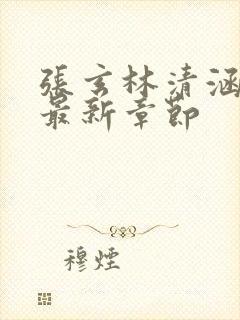 張玄林清涵
最新章節
穆煙